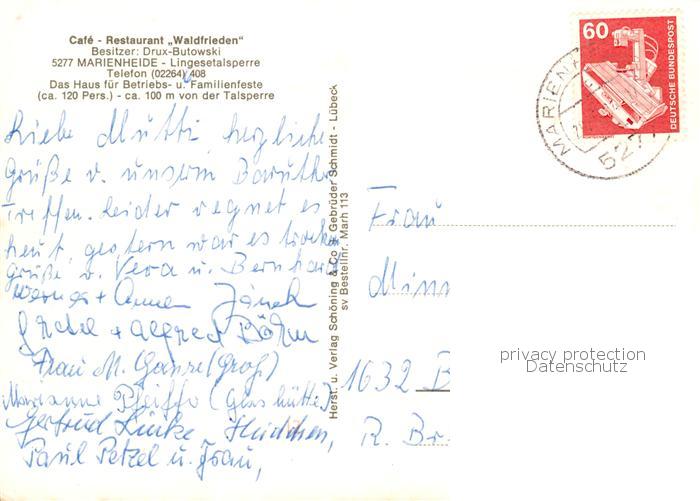 Café - Restaurant „Waldfrieden“
Besitzer: Drux-Butowski
5277 MARIENHEIDE - Lingesetalsperre
Telefon (02264) 408
Das Haus für Betriebs- u. Familienfeste
(ca. 120 Pers.) - ca. 100 m von der Talsperre
Liebe Mutti, herzliche
Grüße v. unserm Baruther
Treffen. Leider regnet es
heut, gestern war es trocken
Grüße v. Vera u. Bernhard
Werner + Annen Jänck
Gretel + Alfred Böhm
Frau M. Ganze (Groß)
Marianne Pfeiffo (Glashütte)
Gertrud Linke
Paul Petzel u. Frau,
Herst. u. Verlag Schöning & Co + Gebrüder Schmidt - Lübeck
sv Bestellnr. Marh 113
60
DEUTSCHE BUNDESPOST
MARIEN
527
Frau
Minn
1632 B
R. Br
privacy protection
Datenschutz